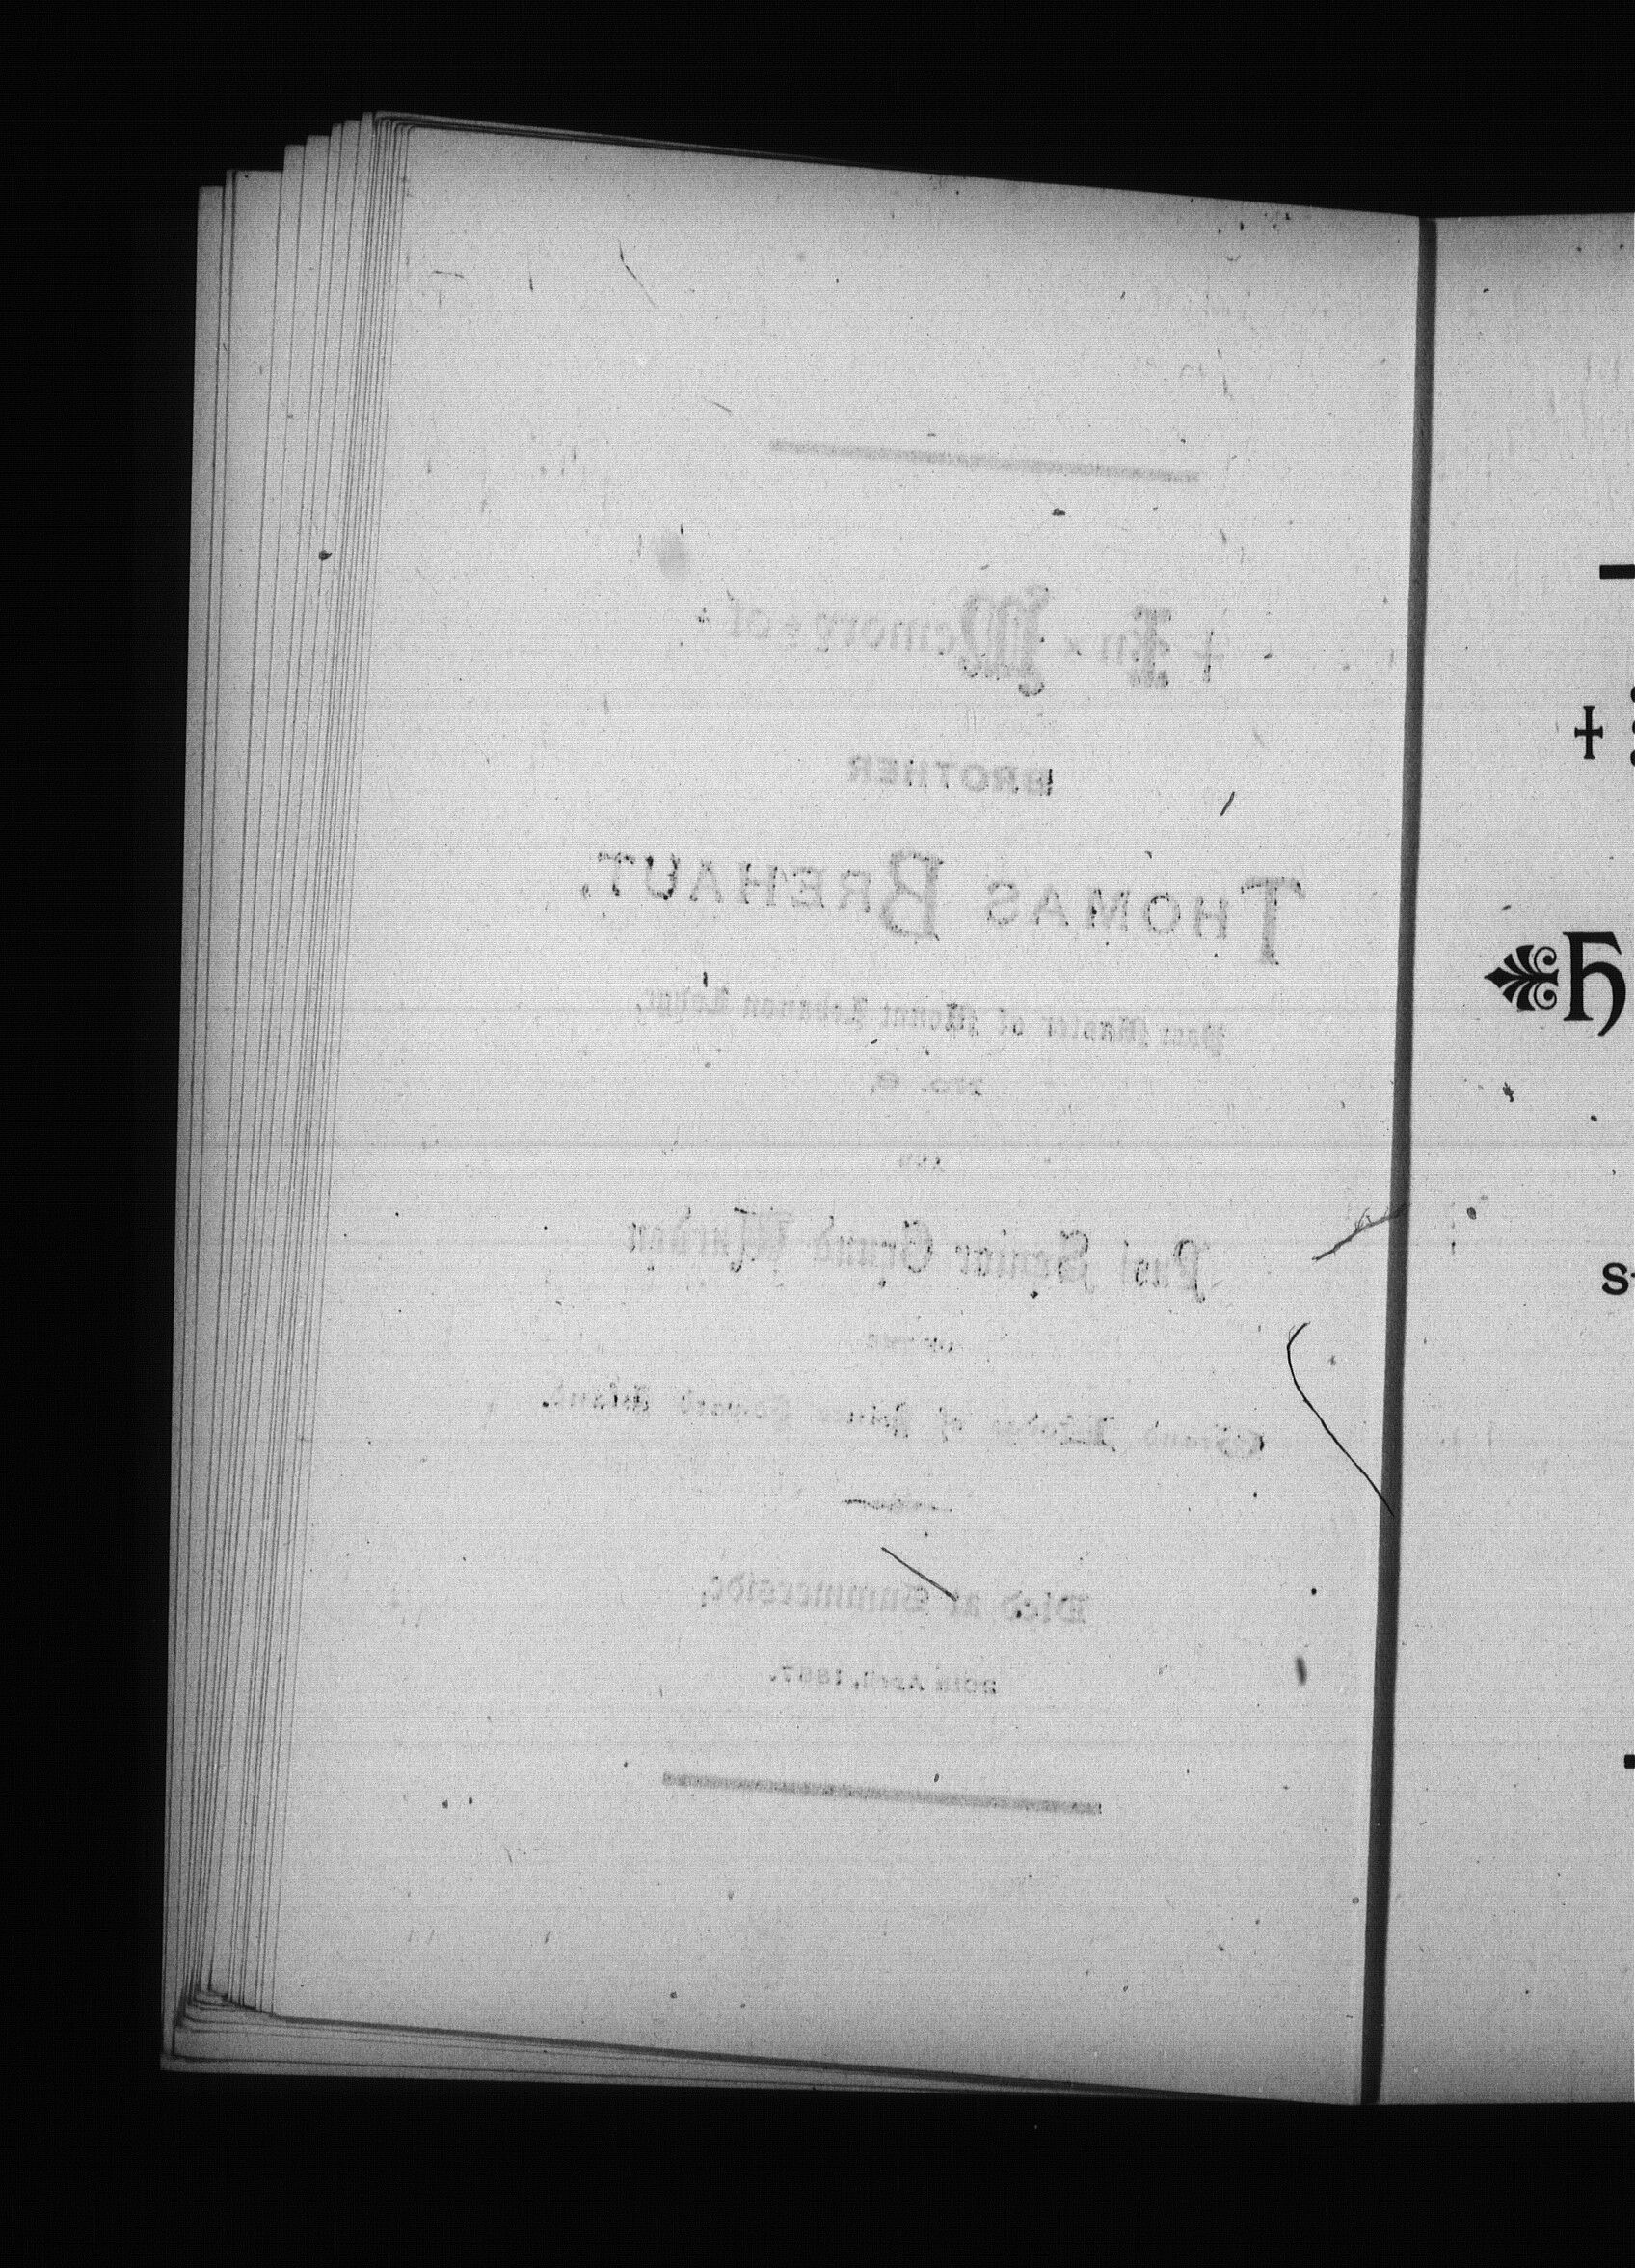 + In × Memory ÷ of +
BROTHER
THOMAS BREHAUT,
Past Master of Mount Lebanon Lodge,
NO. 6,
AND
Past Senior Grand Warden
OF THE
Grand Lodge of Prince Edward Island.
Died at Summerside,
20TH APRIL, 1887.
‡
H
S